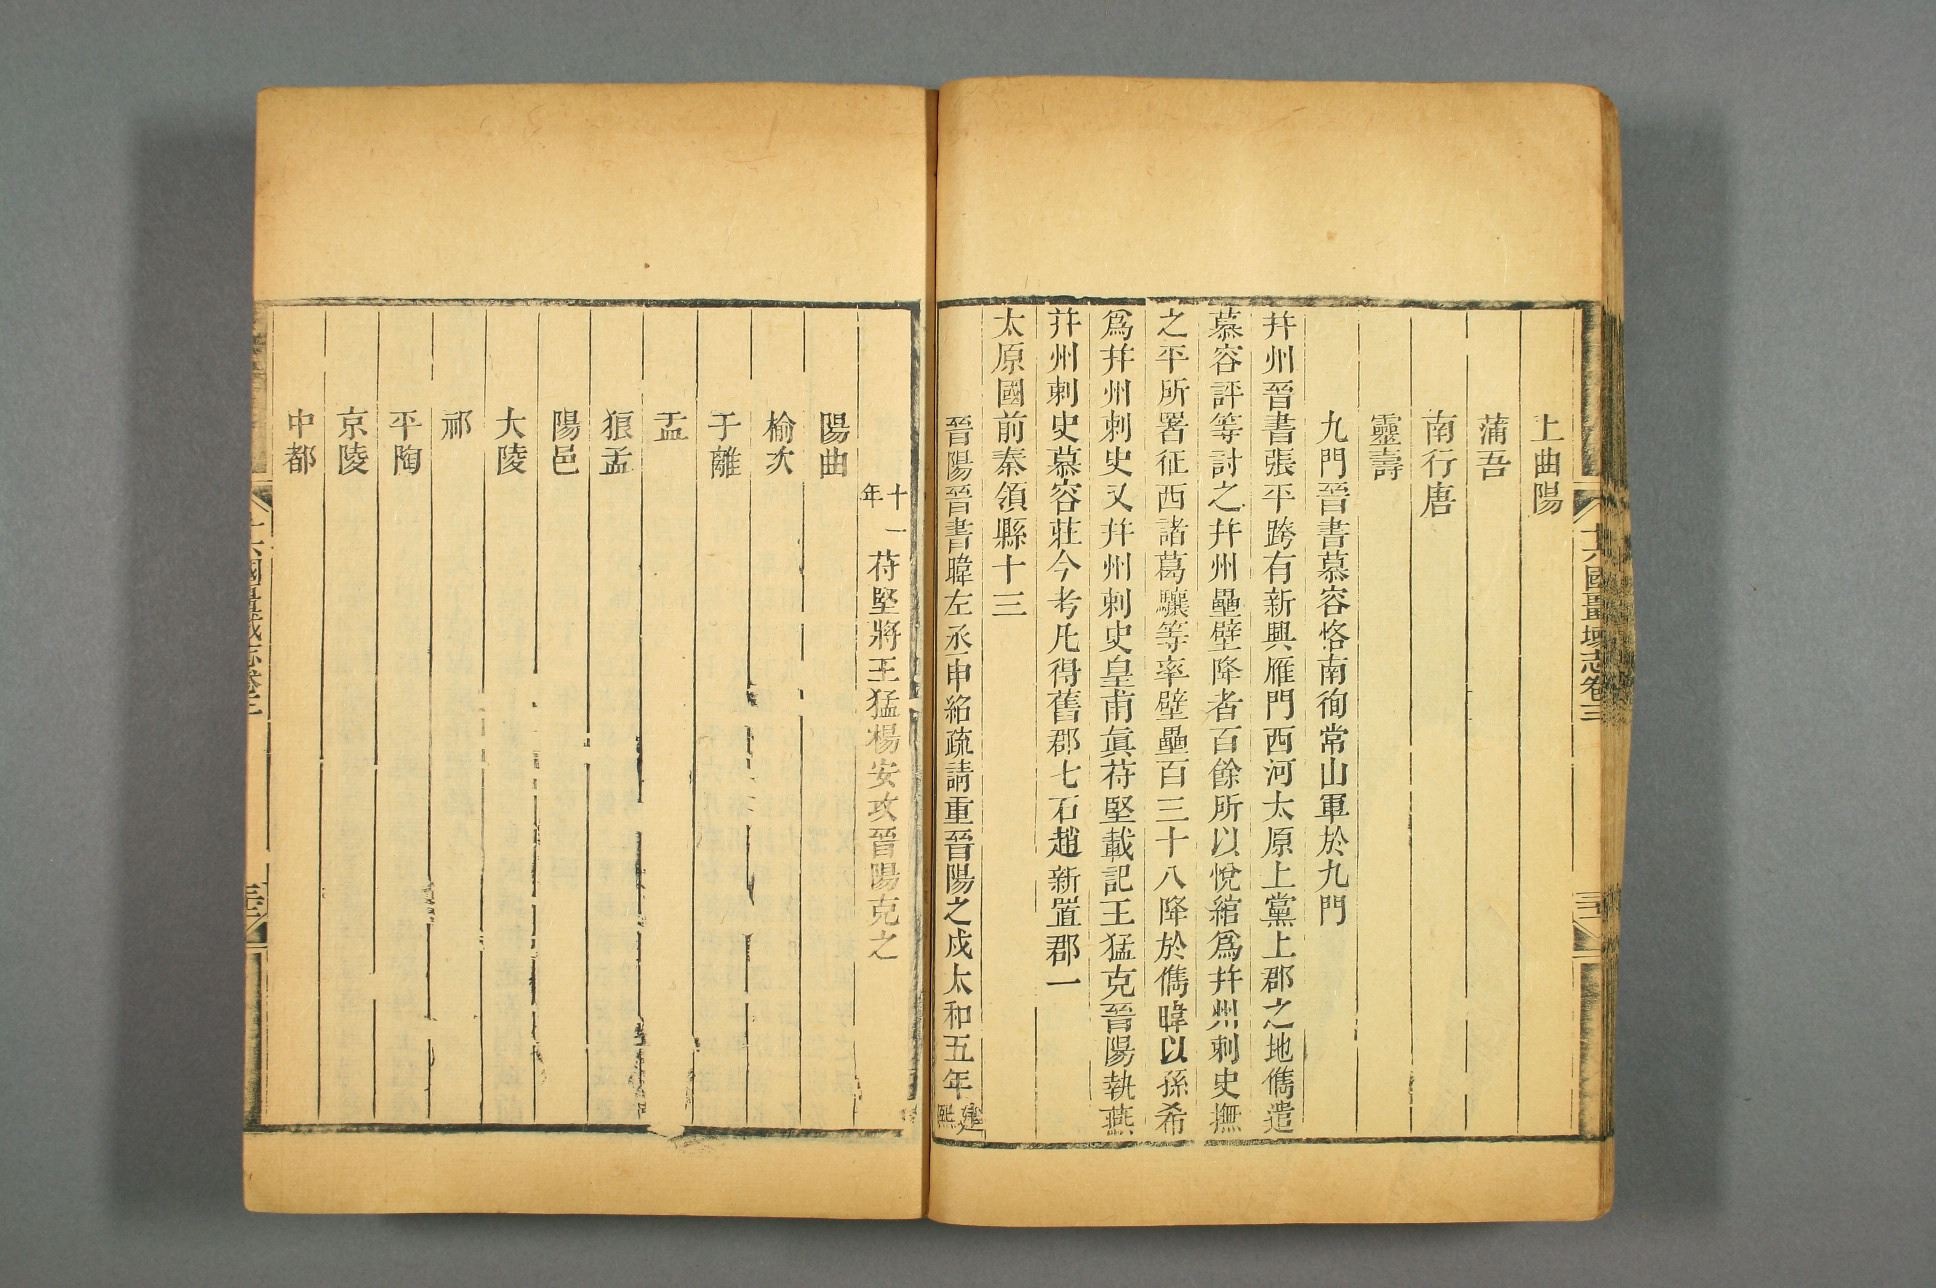 上曲陽
蒲吾
南行唐
靈壽
九門晉書慕容恪南徇常山軍於九門
幷州晉書張平跨有新興雁門西河太原上黨上郡之地儁遣
慕容評等討之幷州壘壁降者百餘所以悅綰爲幷州刺史撫
之平所署征西諸葛驤等率壁壘百三十八降於儁暐以孫希
爲幷州刺史又幷州刺史皇甫眞苻堅載記王猛克晉陽執燕
幷州刺史慕容莊今考凡得舊郡七石趙新置郡一
太原國前秦領縣十三
晉陽晉書暐左丞申紹疏請重晉陽之戍太和五年建熙
十一年苻堅將王猛楊安攻晉陽克之
陽曲
榆次
于離
盂
狼孟
陽邑
大陵
祁
平陶
京陵
中都
十六國疆域志卷三